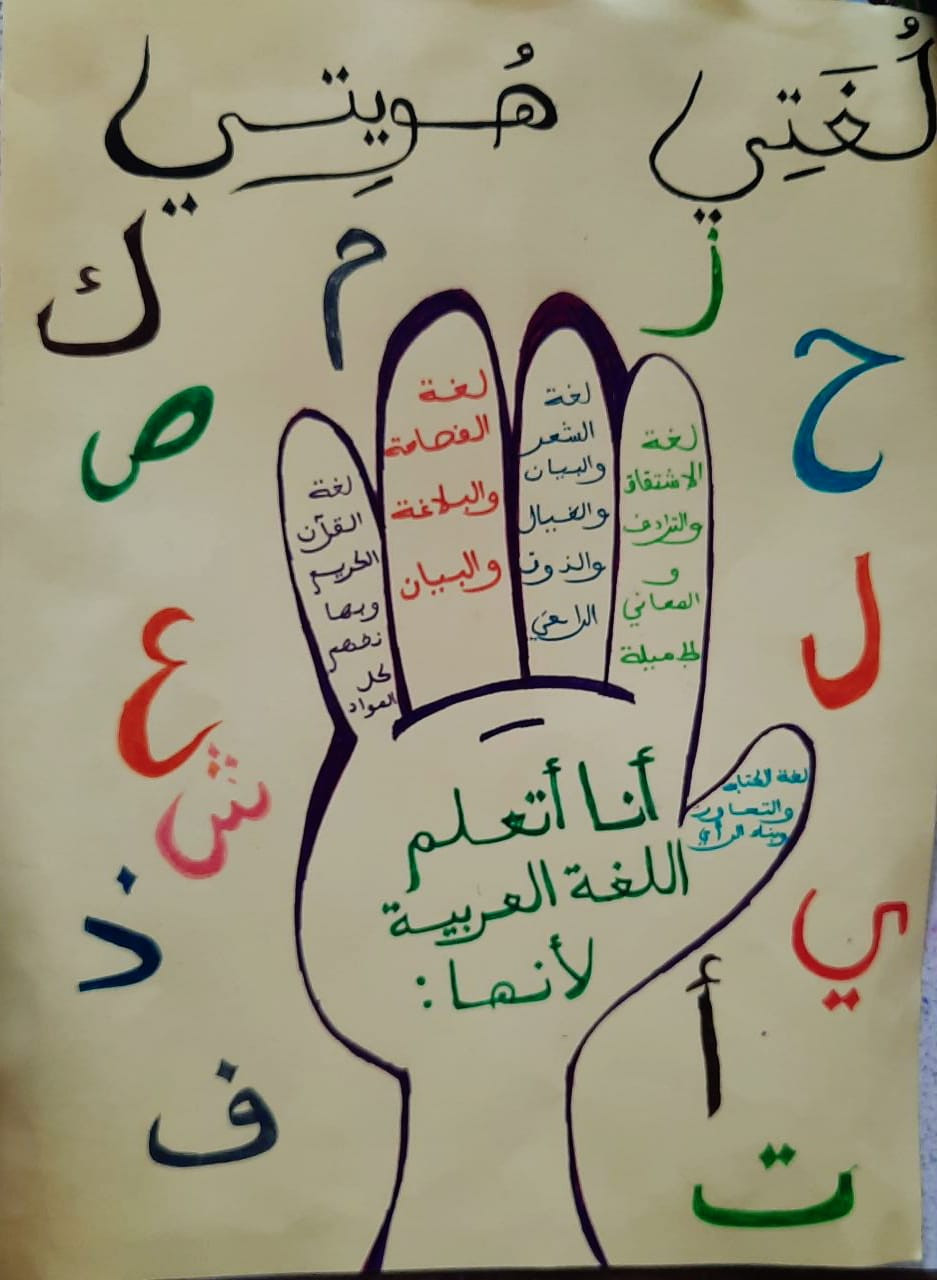 لُغَتِي هُويتِي
ز
م
ك
ح
ص
ل
ع
ش
ي
ذ
أ
ف
ت
أنا أتعلم
اللغة العربية
لأنها:
لغة
الاشتقاق
والترادف
و
المعاني
الجميلة
لغة
الشعر
والبيان
والخيال
والذوق
الراقي
لغة
الفصاحة
والبلاغة
والبيان
لغة
القرآن
الكريم
وبها
نفهم
كل
المواد
لغة الكتابة
والتحاور
الرأي